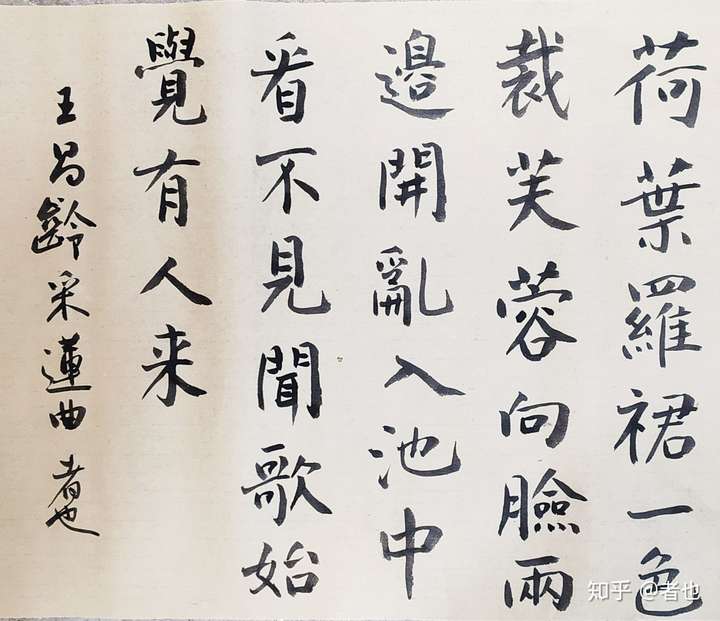 荷葉羅裙一色
裁芙蓉向臉兩
邊開亂入池中
看不見聞歌始
覺有人来
王昌齡采蓮曲 者也
知乎 @者也